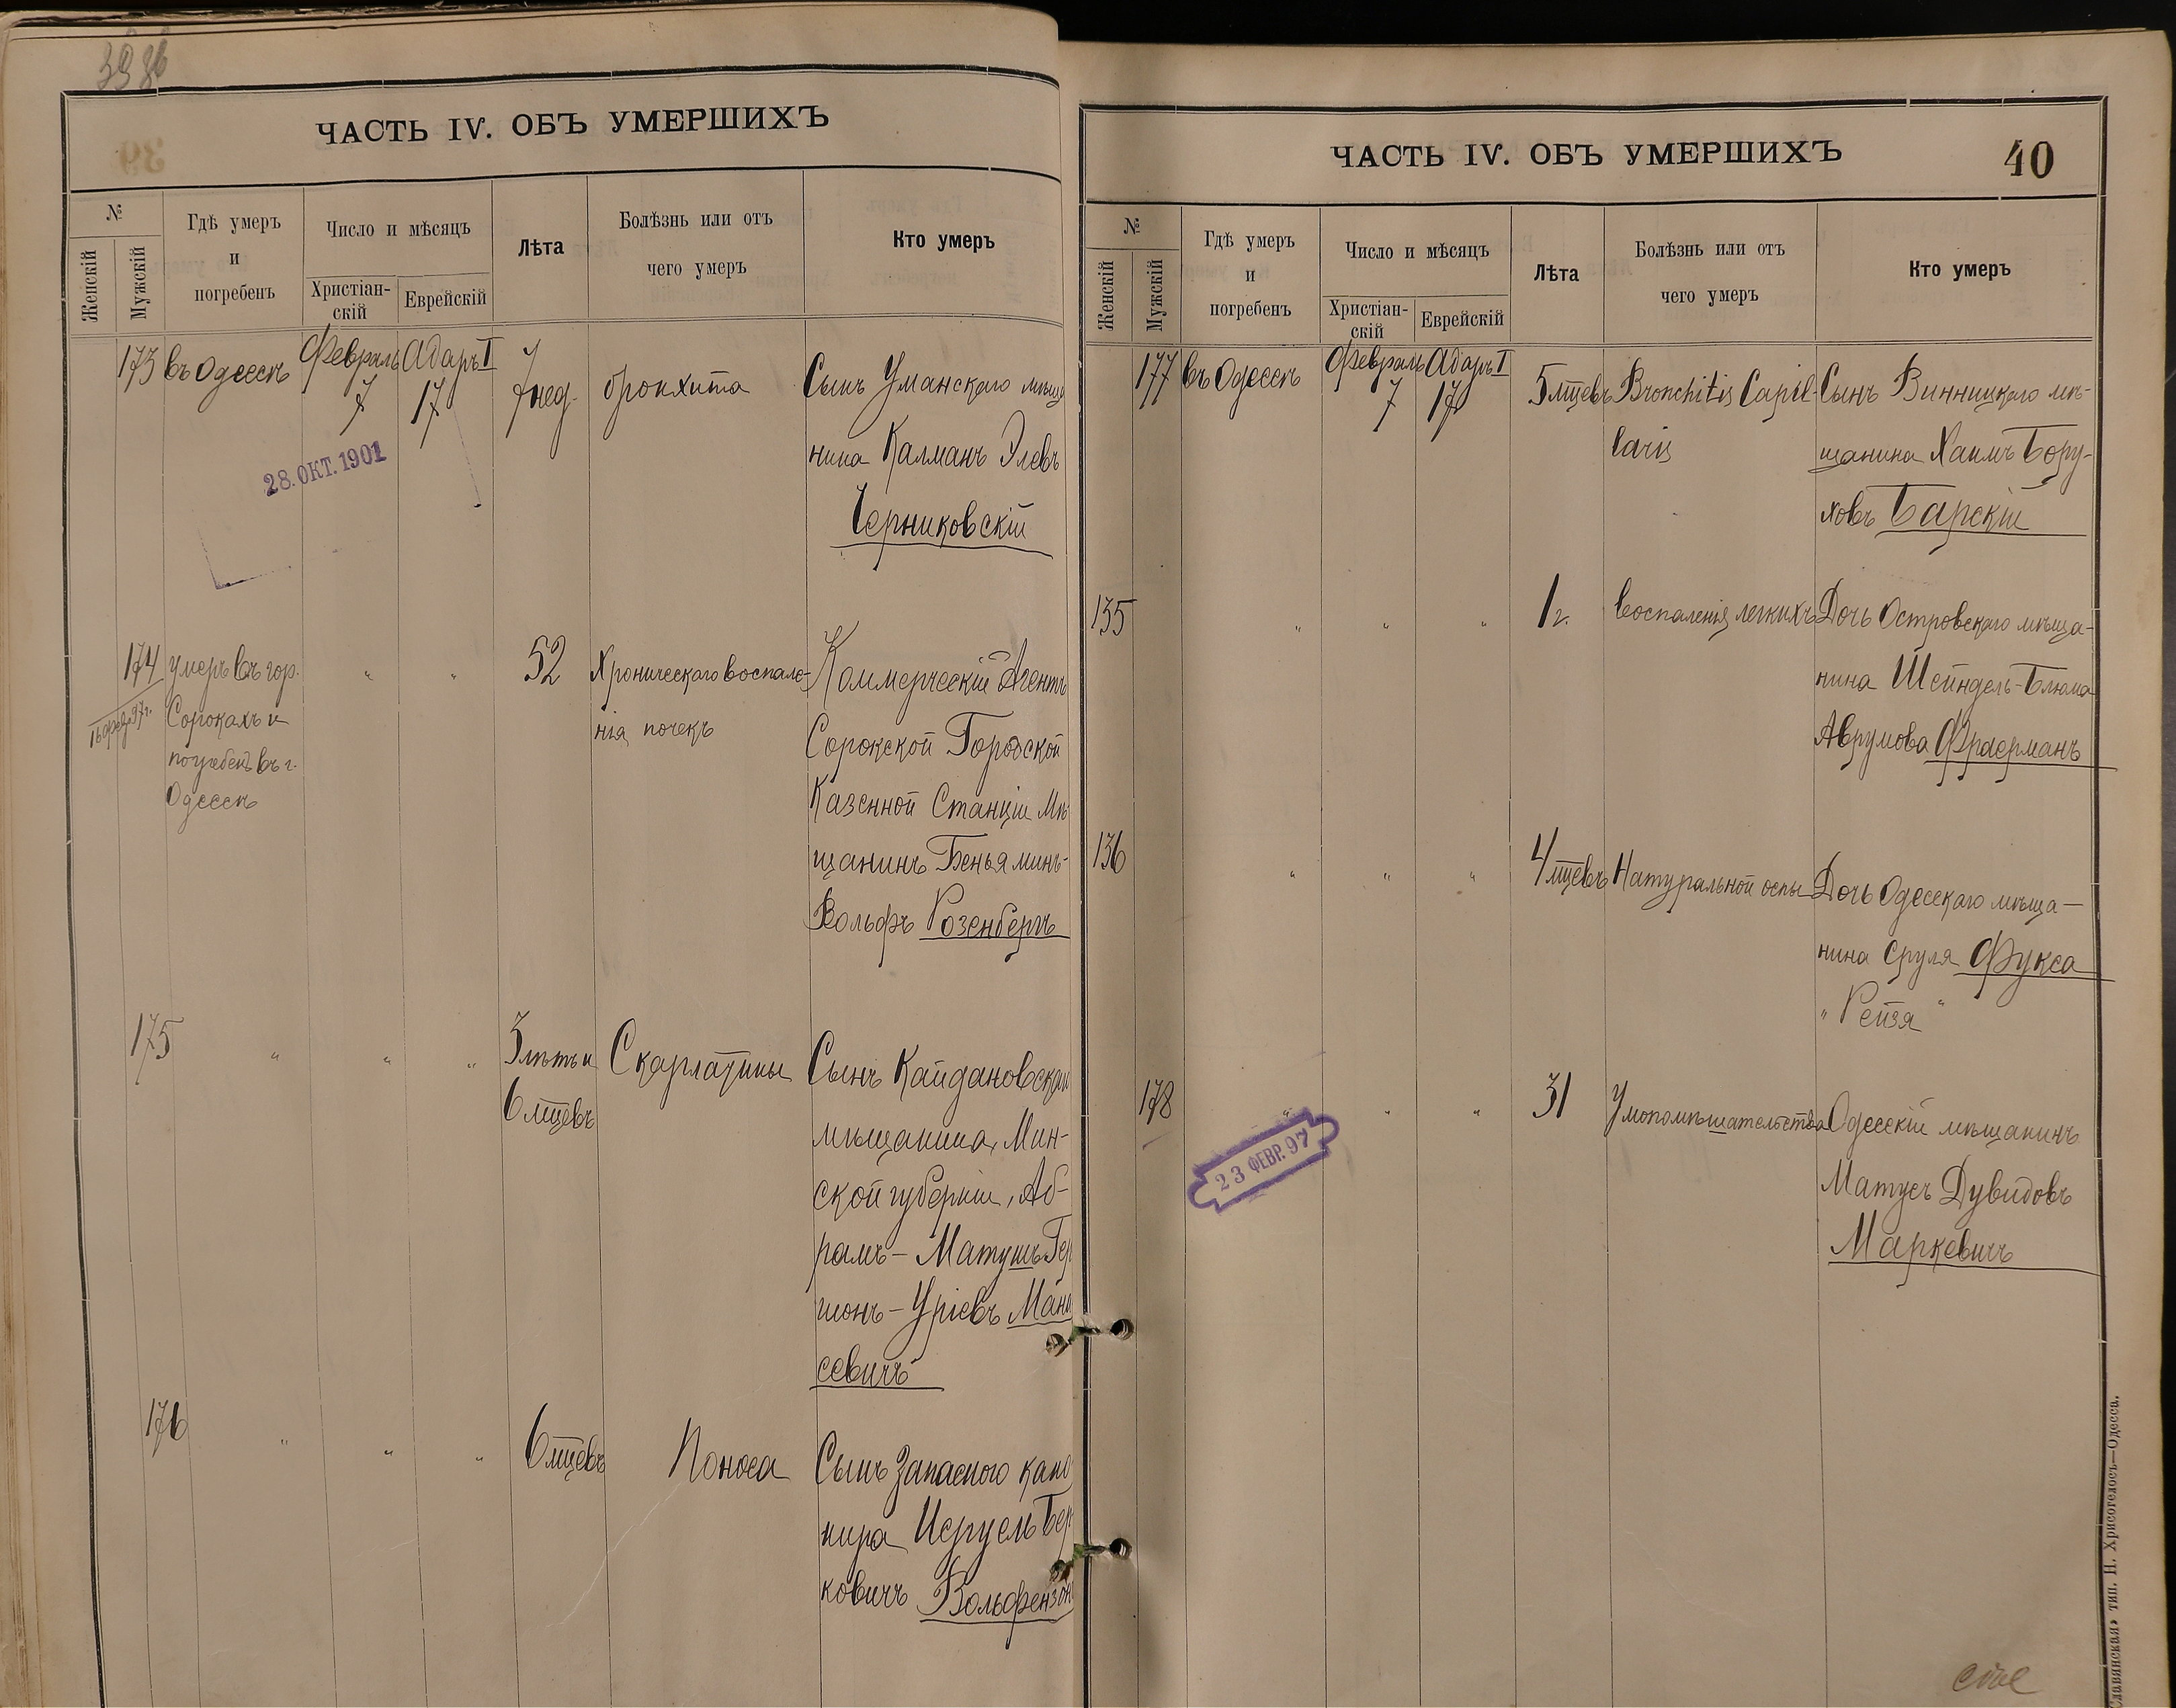 ЧАСТЬ IV. ОБЪ УМЕРШИХЪ
№
Женскій
Мужскій
Гдѣ умеръ
и
погребенъ
Число и мѣсяцъ
Христіан-
скій
Еврейскій
Лѣта
Болѣзнь или отъ
чего умеръ
Кто умеръ
173 въ Одессѣ Февраль Адаръ I
7 17 7 нед. бронхита Сынъ Уманскаго мѣща
нина Калманъ Элевъ
Черниковскій
28. ОКТ. 1901
174 умеръ въ гор. " " 52 Хроническаго воспале- Коммерческій Агентъ
Сорокахъ и нія почекъ Сорокской Городской
погребенъ въ г. Казенной Станціи Мѣ
Одессѣ щанинъ Беньяминъ-
Вольфъ Розенбергъ
175 " " " 3 лѣтъ и Скарлатины Сынъ Кайдановскаго
6 мцевъ мѣщанина, Мин-
ской губерніи, Аб-
рамъ-Матушъ Гер
шонъ-Уріевъ Мана
севичъ
176 " " " 6 мцевъ Поноса Сынъ Запаснаго кано
нира Исруель Бер
ковичъ Вольфензон
ЧАСТЬ IV. ОБЪ УМЕРШИХЪ
40
№
Женскій
Мужскій
Гдѣ умеръ
и
погребенъ
Число и мѣсяцъ
Христіан-
скій
Еврейскій
Лѣта
Болѣзнь или отъ
чего умеръ
Кто умеръ
177 въ Одессѣ Февраль Адаръ I
7 17 5 мцевъ Bronchitis Capil- Сынъ Винницкаго мѣ-
laris щанина Хаимъ Бору-
ховъ Барскій
135 " " " 1 г. воспаленія легкихъ Дочь Островскаго мѣща-
нина Шейндель-Блюма
Аврумова Фраерманъ
136 " " " 4 мцевъ Натуральной оспы Дочь Одесскаго мѣща-
нина Сруля Фукса
" Рейзя "
178 " " " 31 Умопомѣшательства Одесскій мѣщанинъ
23 ФЕВР. 97
Матусъ Дувидовъ
Маркевичъ
Славянская» тип. Н. Хрисогелосъ—Одесса.